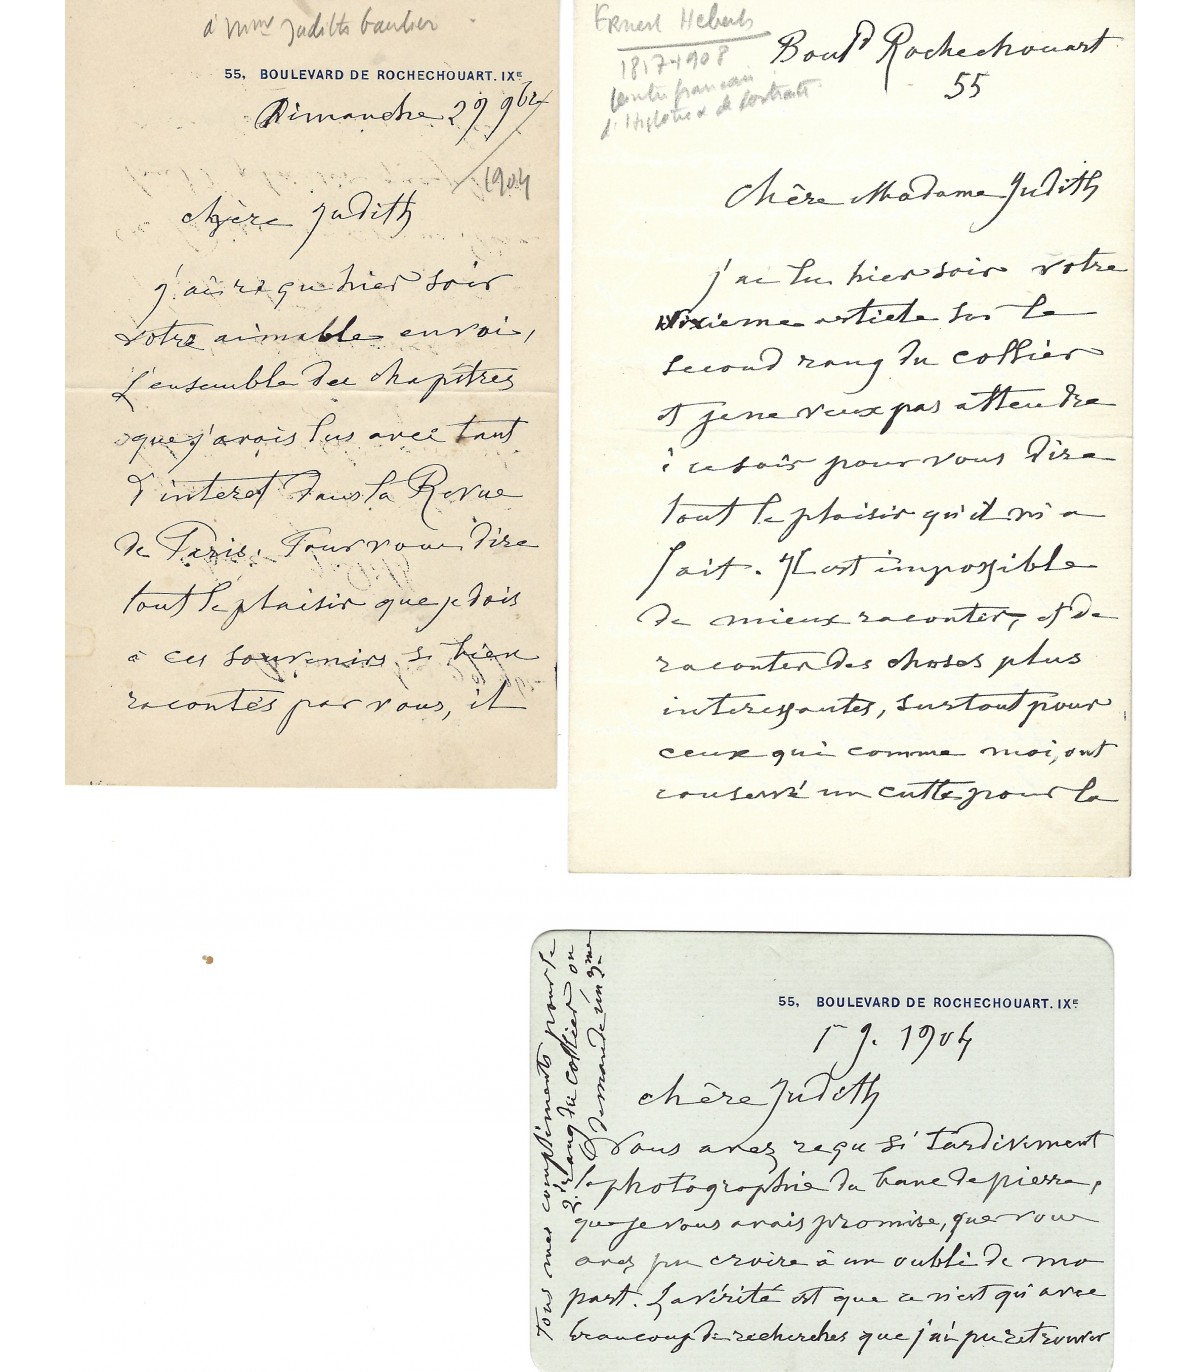 à Mme Judith Gautier
55, BOULEVARD DE ROCHECHOUART. IXE
Dimanche 29
1904
chère Judith
j'ai reçu hier soir
votre aimable envoi,
L'ensemble des chapitres
que j'avais lus avec tant
d'interet dans la Revue
de Paris. Pour vous dire
tout le plaisir que je dois
à ces souvenirs si bien
racontés par vous, il
Ernest Hebert
1817-1908
peintre français
d'Histoire & de portraits
Boud Rochechouart
55
Chère Madame Judith
j'ai lu hier soir votre
article sur le
second rang du collier
et je ne veux pas attendre
à ce soir pour vous dire
tout le plaisir qu'il m'a
fait. Il est impossible
de mieux raconter, et de
raconter des choses plus
interessantes, surtout pour
ceux qui comme moi, ont
conservé un culte pour la
55, BOULEVARD DE ROCHECHOUART. IXE
1r j. 1904
chère Judith
Vous avez reçu si tardivement
la photographie du banc de pierre,
que je vous avais promise, que vous
avez pu croire à un oubli de ma
part. La vérité est que ce n'est qu'avec
beaucoup de recherches que j'ai pu retrouver
Tous mes compliments pour le
2d rang du collier on
demande un 3me